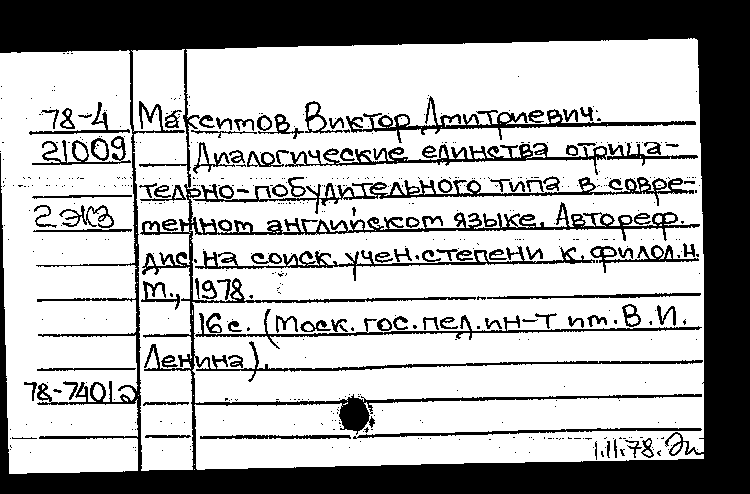 78-4 Максимов, Виктор Дмитриевич.
21009 Диалогические единства отрица-
тельно-побудительного типа в совре-
2 экз менном английском языке. Автореф.
дис. на соиск. учен. степени к. филол. н.
М., 1978.
16 с. (Моск. гос. пед. ин-т им. В. И.
Ленина).
78-7401а
1.11.78.